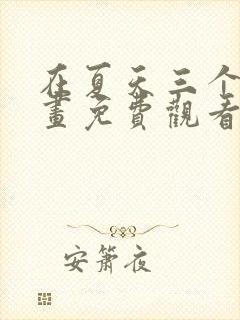 在夏天三个
畫免費觀看
安簫夜